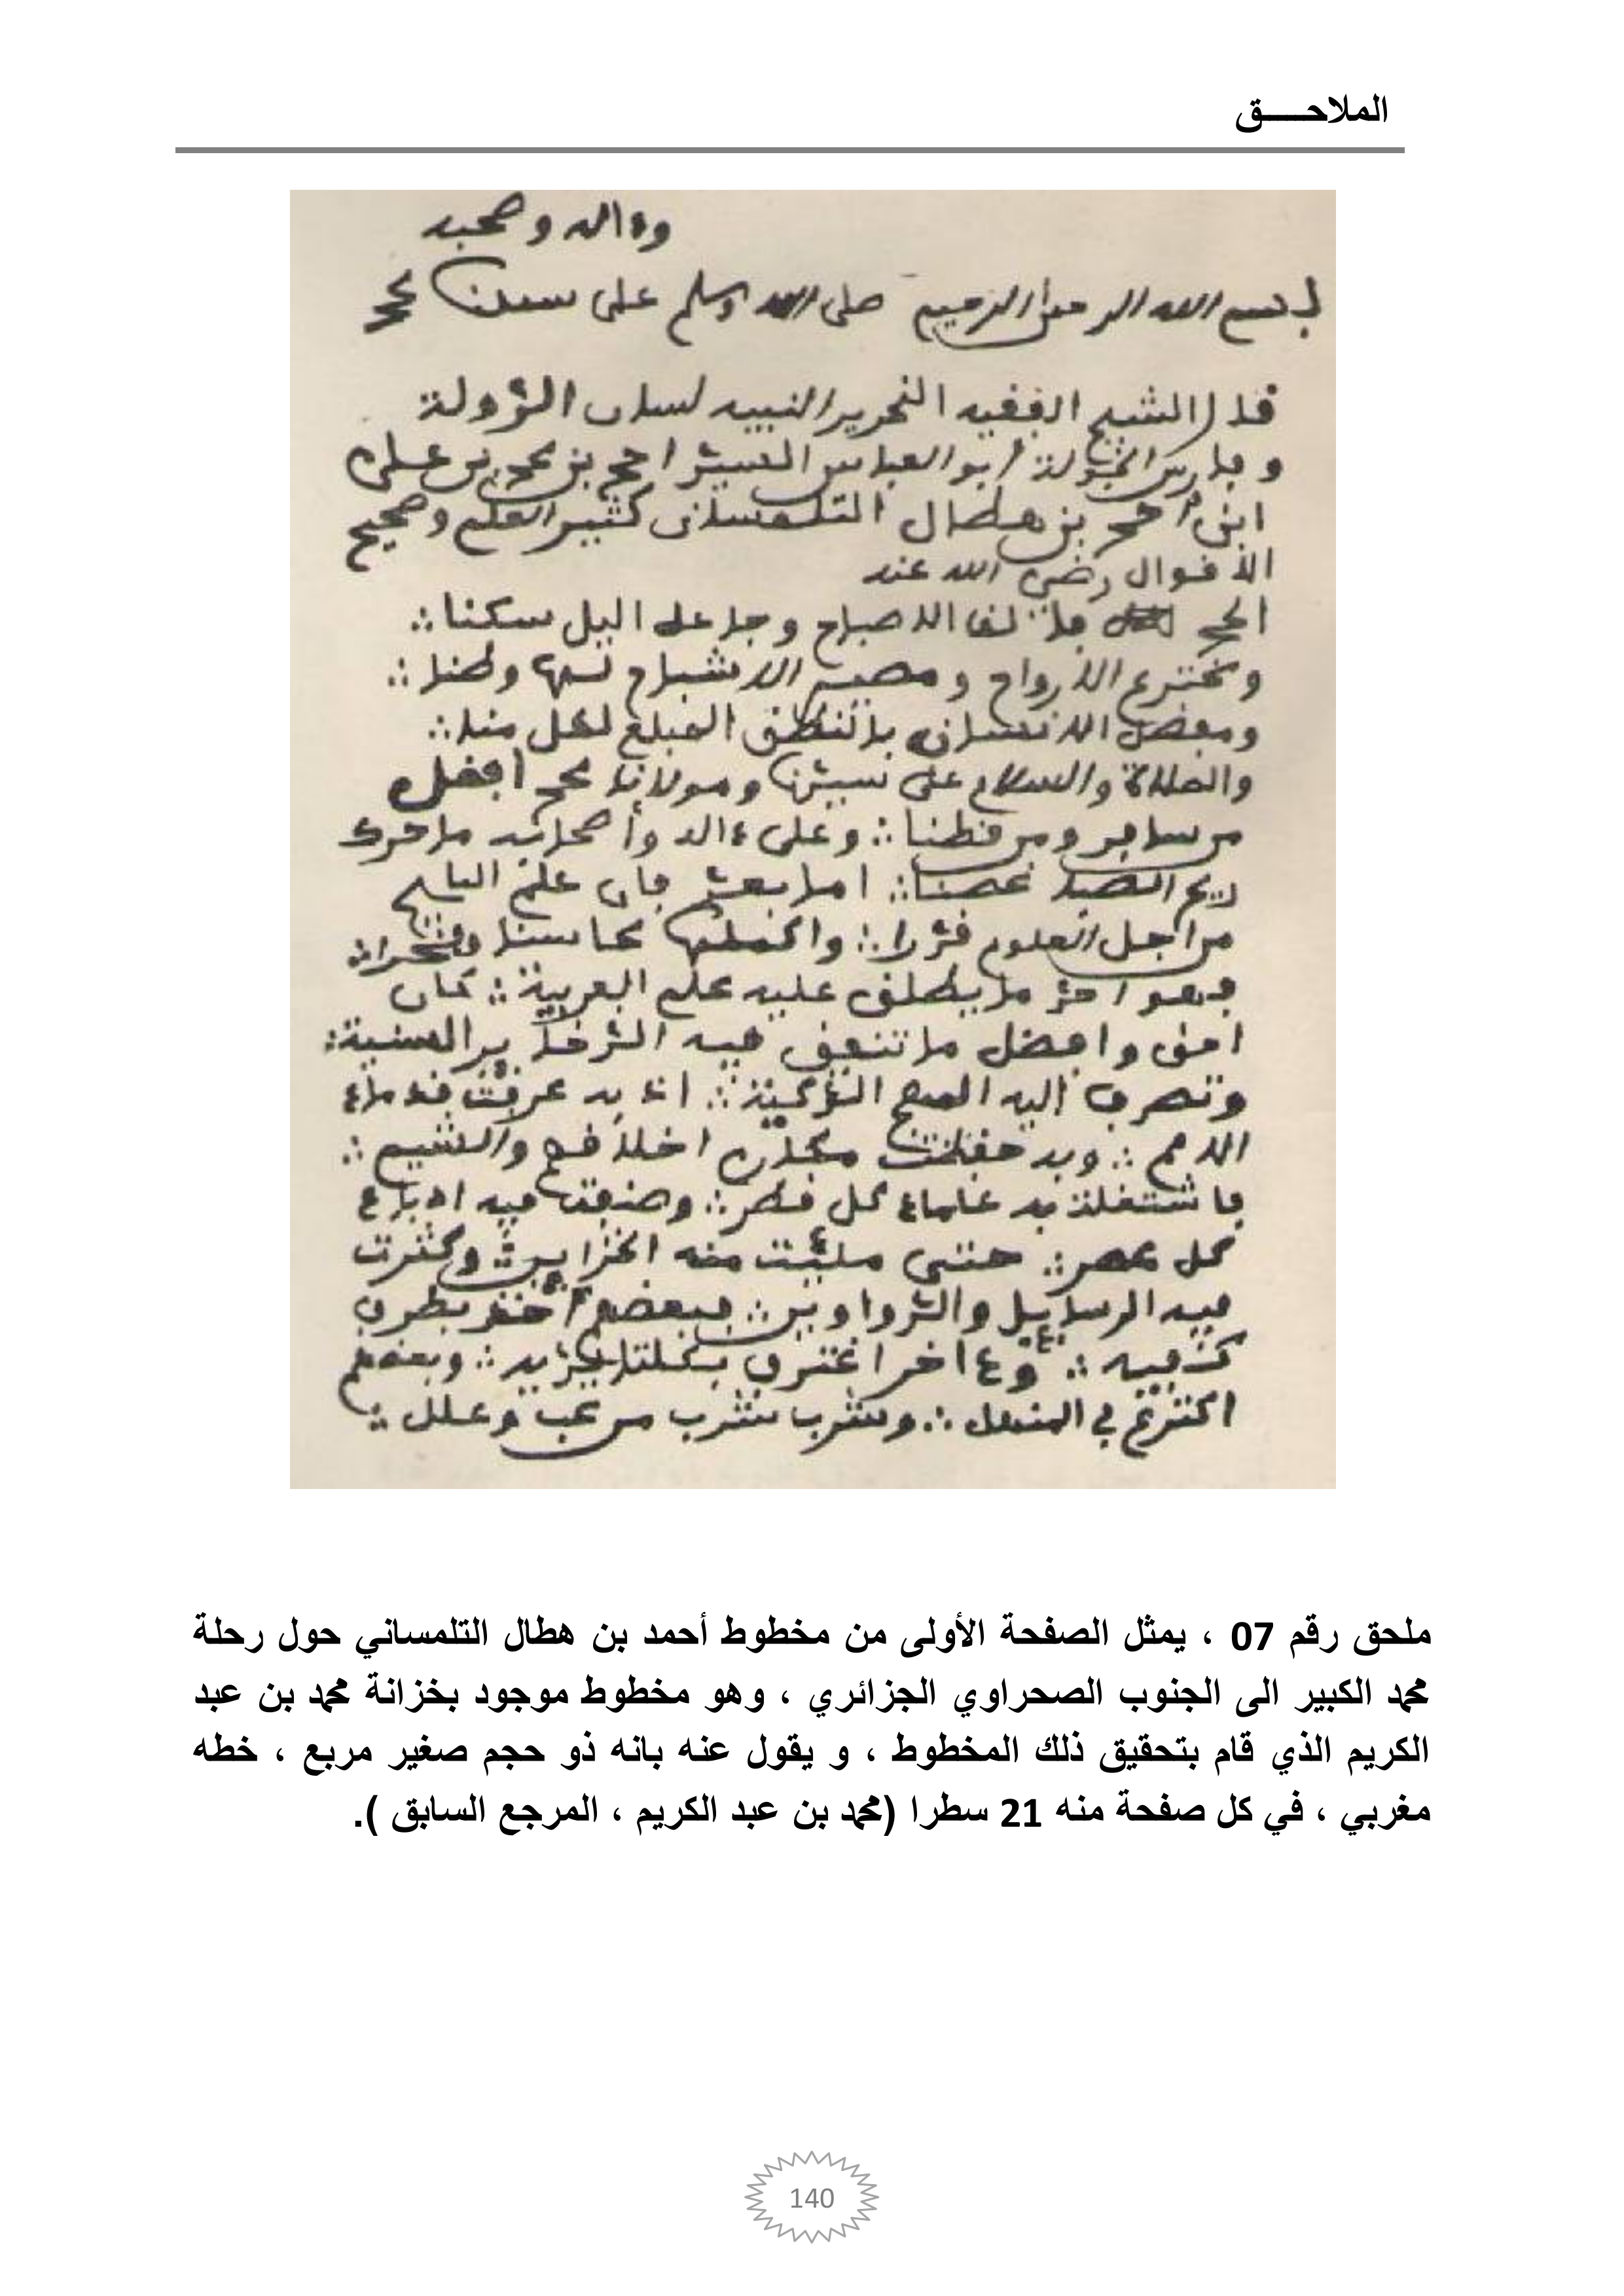 الملاحــــق
وءاله وصحبه
بسم الله الرحمن الرحيم صلى الله وسلم على سيدنا محمد
قال الشيخ الفقيه النحرير النبيه لسان الدولة
وفارس الجولة أبو العباس السيد احمد بن محمد بن علي
ابن أحمد بن هطال التلمساني كثير العلم وصحيح
الاقوال رضي الله عنه
الحمد لله فالق الاصباح وجاعل اليل سكنا ∴
ومخترع الارواح ومصير الاشباح لها وطنا ∴
ومفضل الانسان بالنطق المبلغ لكل منا ∴
والصلاة والسلام على سيدنا ومولانا محمد افضل
من سافر ومن قطنا ∴ وعلى ءاله وأصحابه ما حرك
ريح الصبا غصنا ∴ اما بعد فان علم التاريخ
من اجل العلوم قدرا ∴ واكملها محاسنا وفخرا ∴
فهو احد ما يطلق عليه علم العربية ∴ كان
احق وافضل ما تنفق فيه الذخاير السنية ∴
وتصرف إليه المهج الزكية ∴ اذ به عرفت قدماء
الامم ∴ وبه حفظت مكارم اخلاقهم والشيم ∴
فاشتغلت به علماء كل قطر ∴ وصنفت فيه ادباء
كل عصر ∴ حتى ملئت منه الخزاين ∴ وكثرت
فيه الرسايل والدواوين ∴ فبعضهم أخذ بطرف
كفيه ∴ وءاخر اغترف بكلتا يديه ∴ وبعضهم
اكترع في المنهل ∴ وشرب شرب من عب وعلل ∴
ملحق رقم 07 ، يمثل الصفحة الأولى من مخطوط أحمد بن هطال التلمساني حول رحلة
محمد الكبير الى الجنوب الصحراوي الجزائري ، وهو مخطوط موجود بخزانة محمد بن عبد
الكريم الذي قام بتحقيق ذلك المخطوط ، و يقول عنه بانه ذو حجم صغير مربع ، خطه
مغربي ، في كل صفحة منه 21 سطرا (محمد بن عبد الكريم ، المرجع السابق ).
140